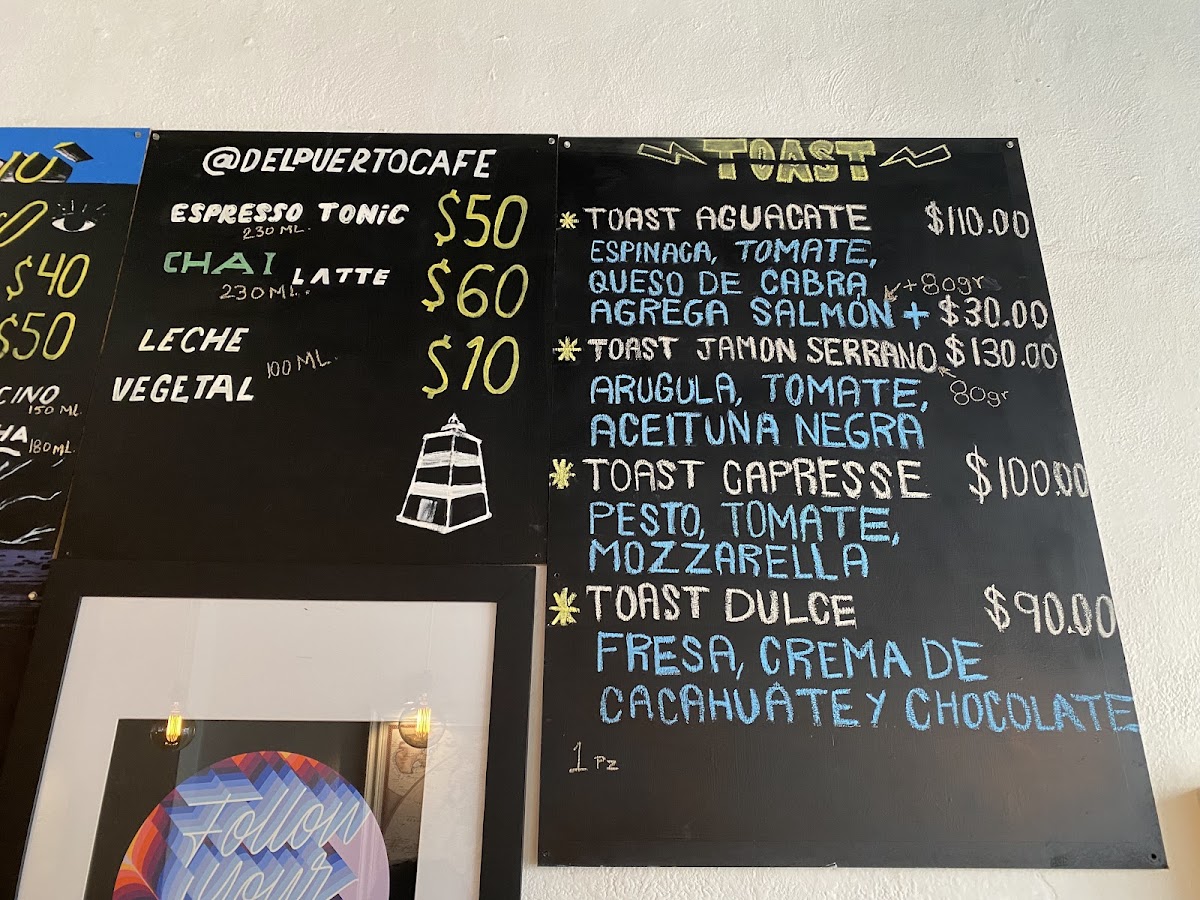 $40
$50
CINO
150 ML
HA
180 ML.
@DELPUERTOCAFE
ESPRESSO TONIC $50
230 ML.
CHAI LATTE $60
230 ML.
LECHE
VEGETAL 100 ML. $10
TOAST
* TOAST AGUACATE $110.00
ESPINACA, TOMATE,
QUESO DE CABRA +80gr
AGREGA SALMÓN + $30.00
* TOAST JAMON SERRANO $130.00
ARUGULA, TOMATE, 80gr
ACEITUNA NEGRA
* TOAST CAPRESSE $100.00
PESTO, TOMATE,
MOZZARELLA
* TOAST DULCE $90.00
FRESA, CREMA DE
CACAHUATE Y CHOCOLATE
1 Pz
Follow
your